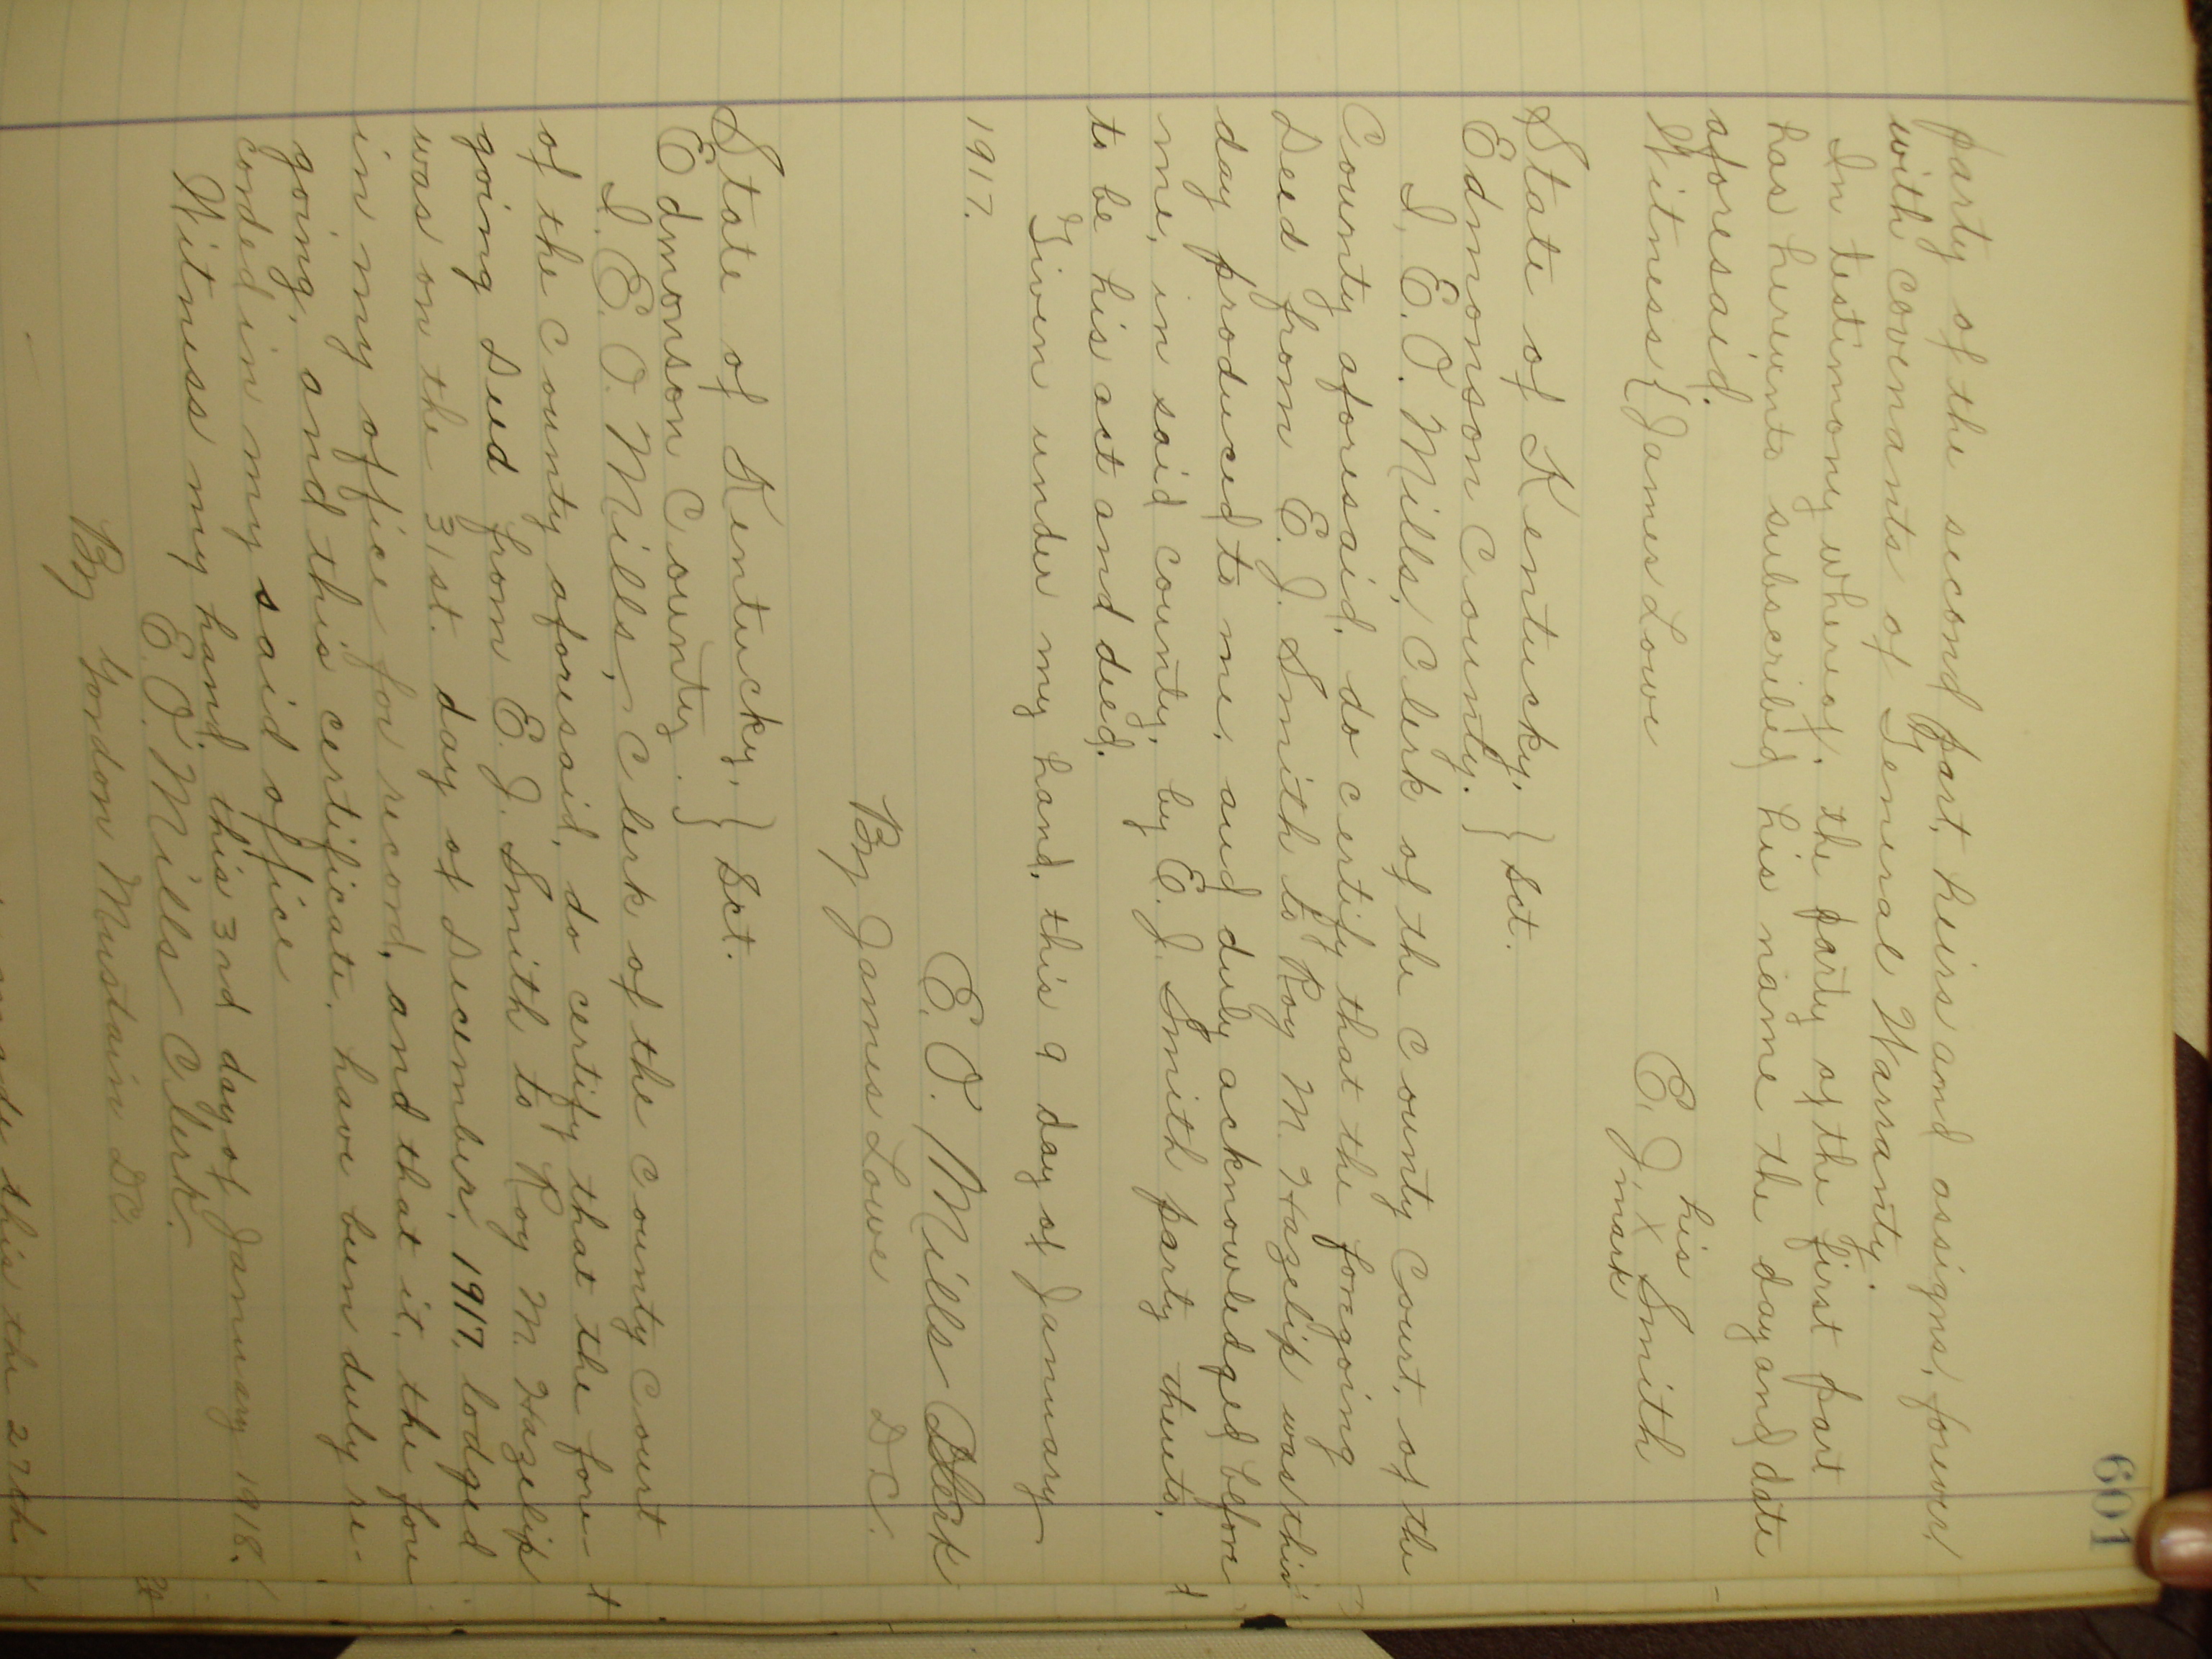 601
party of the second part, heirs and assigns, forever
with covenants of General Warranty.
In testimony whereof, the party of the first part
has hereunto subscribed his name the day and date
aforesaid.
his
Witness { James Lowe E. J. X Smith
mark
State of Kentucky, } Sct.
Edmonson County. }
I, E. O. Mills, Clerk of the County Court, of the
County aforesaid, do certify that the foregoing
Deed from E. J. Smith to Roy M. Hazelip was this
day produced to me, and duly acknowledged before
me, in said county, by E. J. Smith party thereto,
to be his act and deed.
Given under my hand, this 9 day of January
1917.
E. O. Mills Clerk
By James Lowe D.C.
State of Kentucky, } Sct.
Edmonson County. }
I. E. O. Mills, Clerk of the County Court
of the County aforesaid, do certify that the fore-
going Deed from E. J. Smith to Roy M. Hazelip
was on the 31st. day of December, 1917, lodged
in my office for record, and that it, the fore
going, and this certificate, have been duly re-
corded in my said office
Witness my hand, this 3rd day of January 1918.
E. O. Mills Clerk.
By Gordon Mustain D.C.
made this the 27th